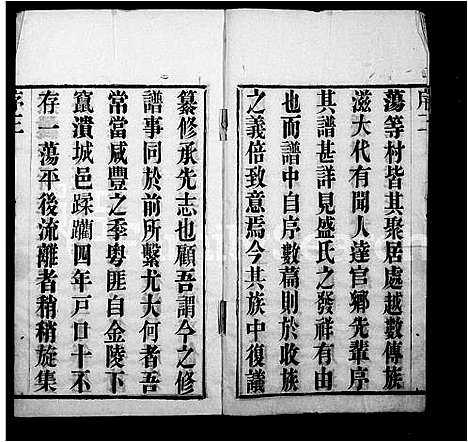 蕩等村皆其聚居處越數傳族
滋大代有聞人達官鄉先輩序
其譜甚詳見盛氏之發祥有由
也而譜中自序數篇則於收族
之義倍致意焉今其族中復議
纂修承先志也顧吾謂今之修
譜事同於前所繫尤大何者吾
常當咸豐之季粵匪自金陵下
竄潰城邑蹂躪四年戸口十不
存一蕩平後流離者稍稍旋集
序三